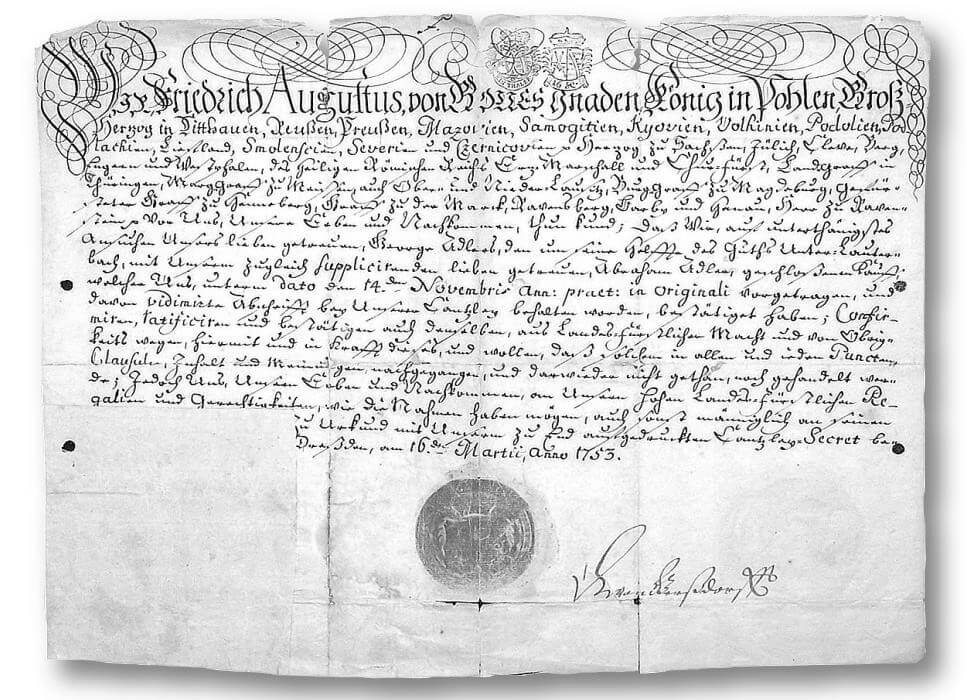 Wir Friedrich Augustus, von GOTTES Gnaden König in Pohlen, Groß
Herzog in Litthauen, Reußen, Preußen, Mazovien, Samogitien, Kyovien, Volhinien, Podolien, Pod
lachien, Liefland, Smolenscien, Severien und Czernicovien ꝛc Herzog zu Sachßen, Jülich, Cleve, Berg,
Engern und Westphalen, des Heiligen Römischen Reichs Erz Marschall und Churfürst, Landgraff in
Thüringen, Marggraff zu Meißen, auch Ober- und Nieder Lausitz, Burggraff zu Magdeburg, Gefür-
steter Graff zu Henneberg, Graff zu der Marck, Ravensberg, Barby und Hanau, Herr zu Raven-
stein ꝛc Vor Uns, Unsere Erben und Nachkommen, thun kund; Daß Wir, auf unterthänigstes
Ansuchen Unsers lieben getreuen, George Adlers, den um seine Helffte des Guths Unter-Lauter-
bach, mit Unserm zugleich supplicirenden lieben getreuen, Abraham Adler, geschloßenen Kauff,
welcher Uns, unterm dato den 14den Novembris Ann: praet: in originali vorgetragen, und
davon vidimirte Abschrifft bey Unserer Canzley behalten worden, bestätiget haben; Confir-
miren, ratificiren und bestätigen auch denselben, aus Landes-Fürstlicher Macht und von Obrig-
keits wegen, hiermit und in Krafft dieses, und wollen, daß solchem in allen und ieden Puncten,
Clausuln, Inhalt und Meinungen, nachgegangen, und darwieder nicht gethan, noch gehandelt wer-
de; Jedoch Uns, Unsern Erben und Nachkommen, an Unsern hohen Landes-Fürstlichen Re-
galien und Gerechtigkeiten, wie die Nahmen haben mögen, auch sonst männiglich an seinen
zu Urkund mit Unserm zu End aufgedruckten Canzley-Secret be-
Dreßden, am 16den Martii, Anno 1753.
von Gersdorff